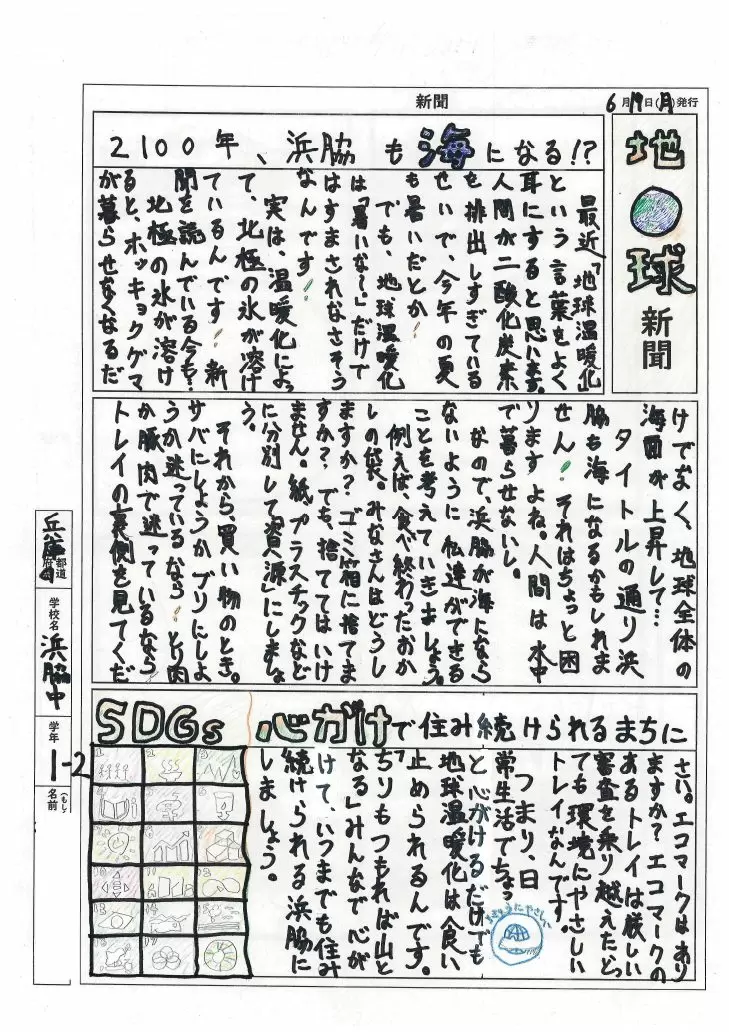 新聞
6月19日(月)発行
地球
新聞
2100年、浜脇も海になる!?
最近「地球温暖化」
という言葉をよく
耳にすると思います。
人間が二酸化炭素
を排出しすぎている
せいで、今年の夏
も暑いだとか!
でも、地球温暖化
は「暑いな〜。」だけで
はすまされなさそう
なんです!
実は、温暖化によっ
て、北極の氷が溶け
ているんです!新
聞を読んでいる今も…
北極の氷が溶け
ると、ホッキョクグマ
が暮らせなくなるだ
けでなく、地球全体の
海面が上昇して…
タイトルの通り浜
脇も海になるかもしれま
せん!それはちょっと困
りますよね。人間は水中
で暮らせないし。
なので、浜脇が海になら
ないように私達ができる
ことを考えていきましょう。
例えば、食べ終わったおか
しの袋。みなさんはどうし
ますか?ゴミ箱に捨てま
すか?でも、捨ててはいけ
ません。紙、プラスチックなど
に分別して"資源"にしましょ
う。
それから、買い物のとき。
サバにしようかブリにしよ
うか迷っているなら…とり肉
か豚肉で迷っているなら
トレイの裏側を見てくだ
心がけで住み続けられるまちに
さい。エコマークはあり
ますか?エコマークの
あるトレイは厳しい
審査を乗り越えたとっ
ても環境にやさしい
トレイなんです。
つまり、日
常生活でちょっ
と心がけるだけでも
地球温暖化は食い
止められるんです。
「ちりもつもれば山と
なる」みんなで心が
けて、いつまでも住み
続けられる浜脇に
しましょう。
ちきゅうにやさしい
SDGs
1
2
3
4
5
6
7
8
9
10
11
12
13
14
15
16
17
兵庫
都道
府県
学校名
浜脇中
学年
1-2
名前